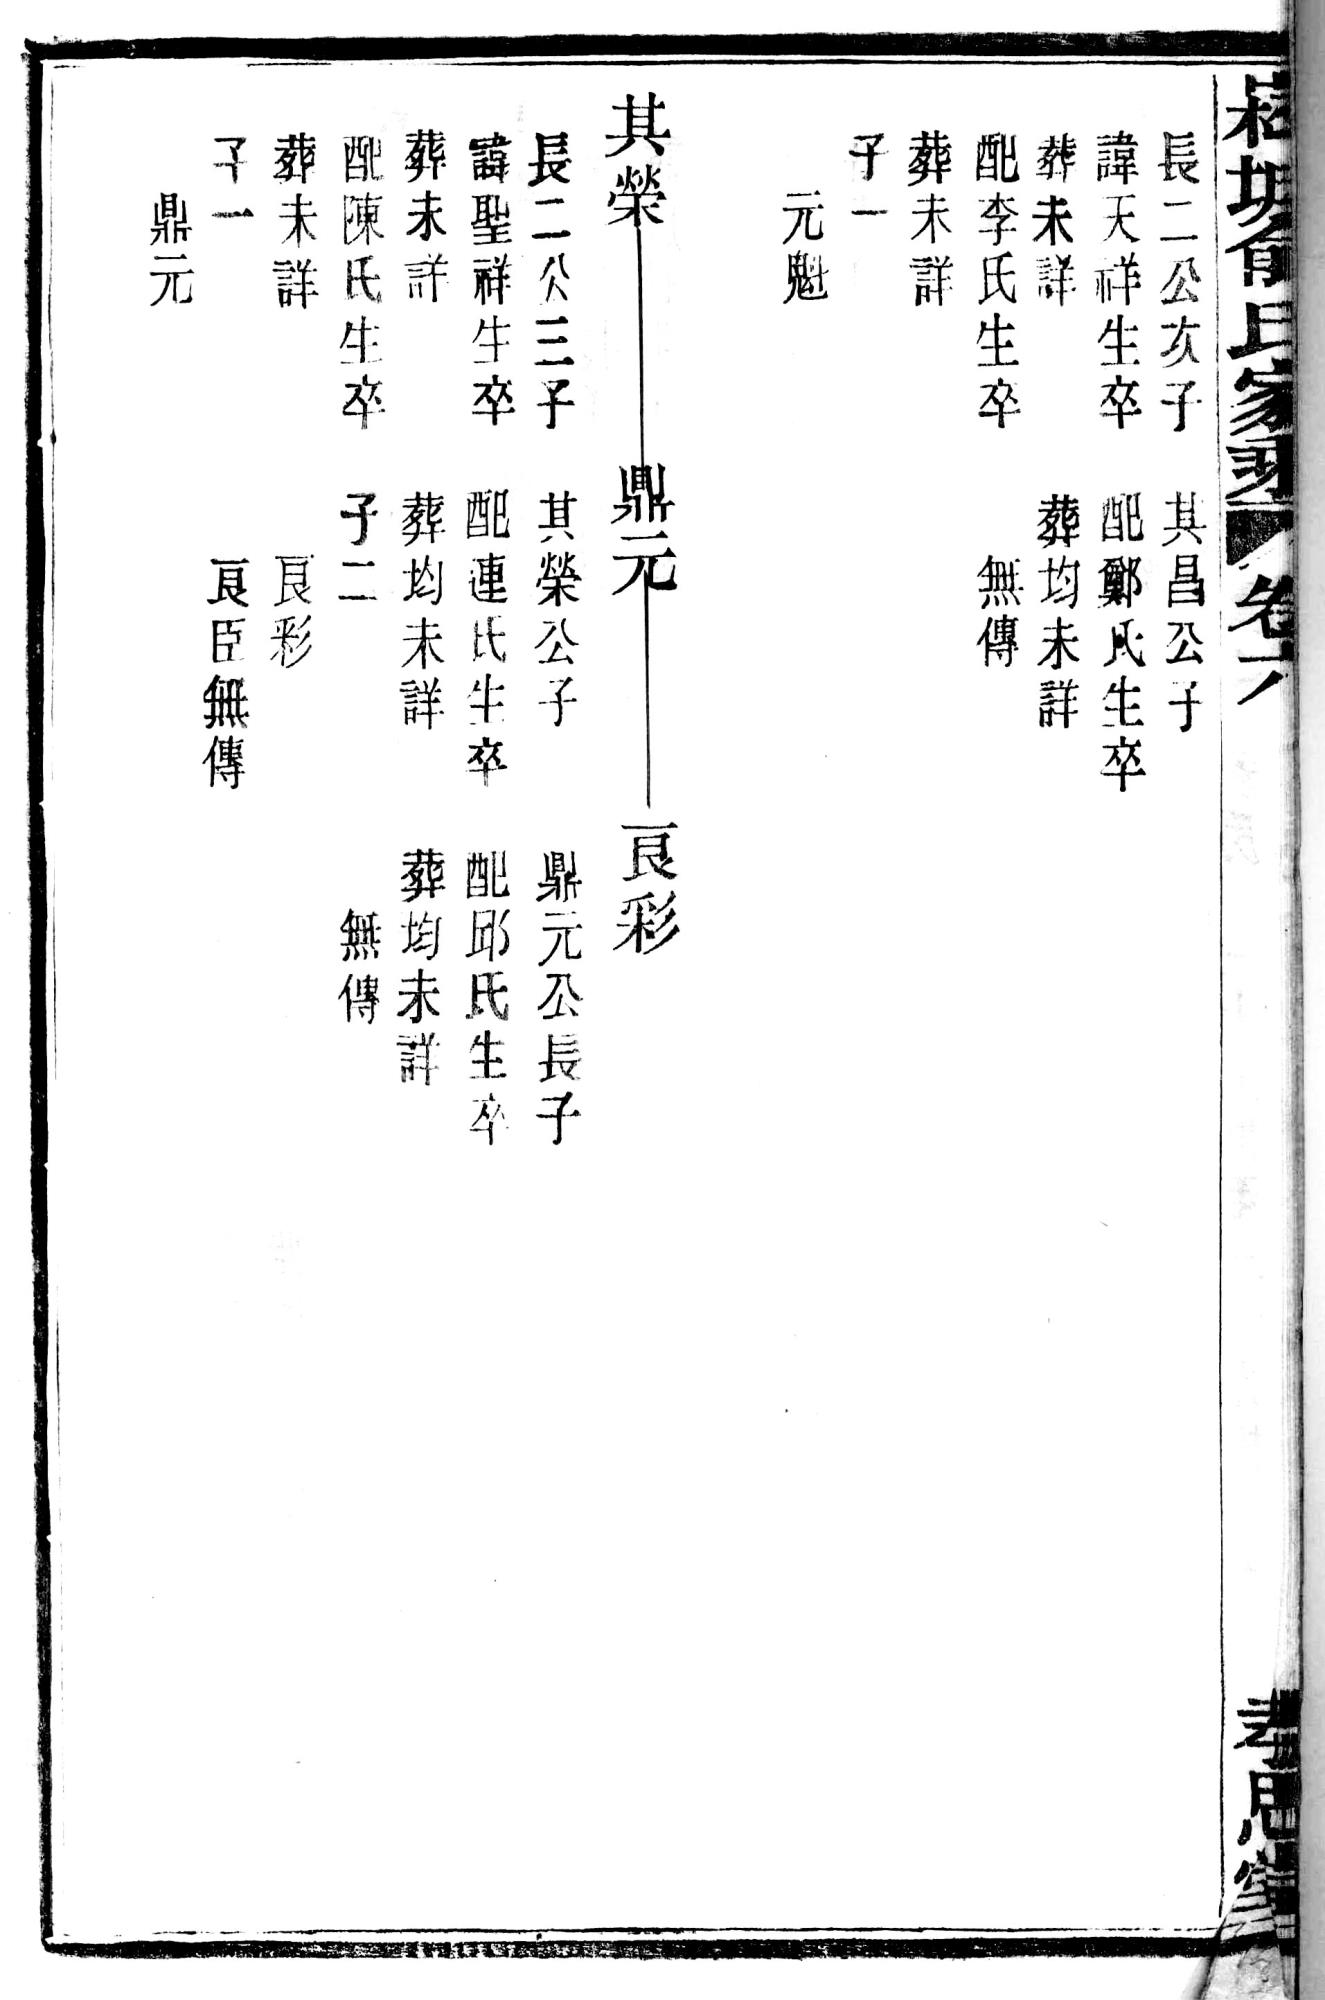 塘俞氏家乘
卷六
孝思堂
長二公次子
諱天祥生卒
葬未詳
配李氏生卒
葬未詳
子一
元魁
其昌公子
配鄭氏生卒
葬均未詳
無傳
其榮
長二公三子
諱聖祥生卒
葬未詳
配陳氏生卒
葬未詳
子一
鼎元
鼎元
其榮公子
配連氏生卒
葬均未詳
子二
良彩
良臣無傳
良彩
鼎元公長子
配邱氏生卒
葬均未詳
無傳